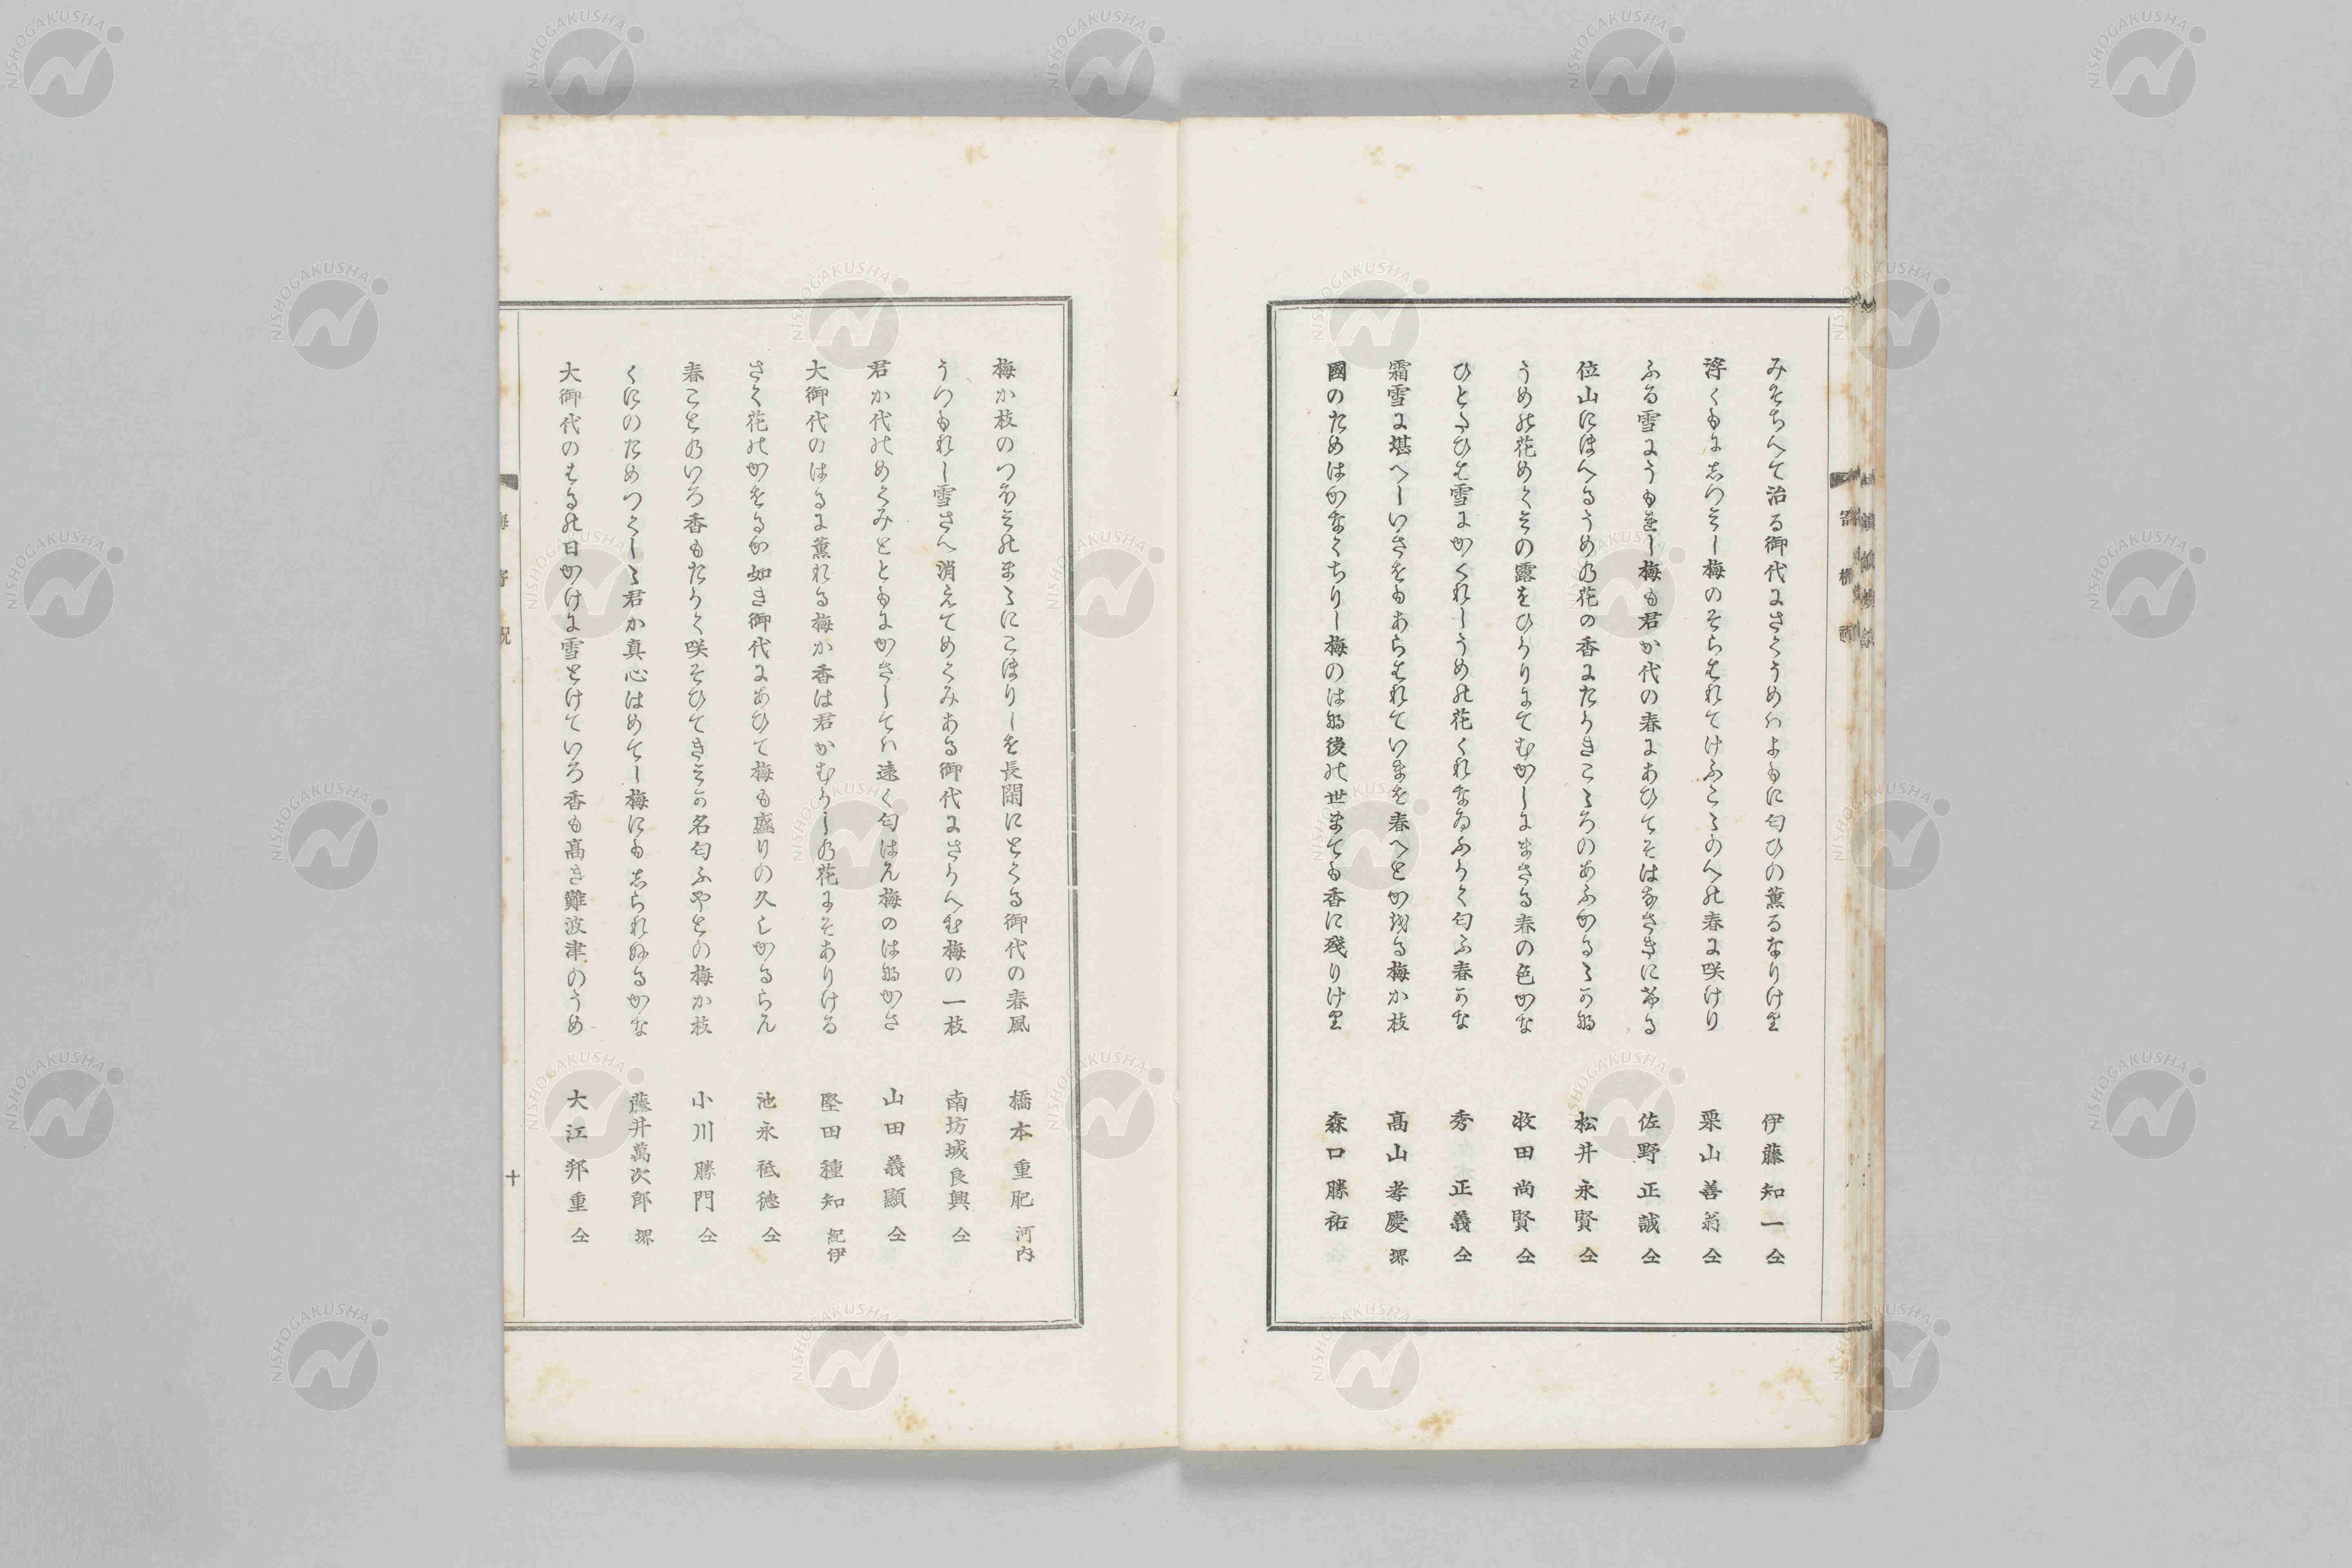 みそちへて治る御代にさくうめハよもに匂ひの薫るなりけり
伊藤知一 仝
浮くもにしつみし梅のそらはれてけふこゝのへの春に咲けり
栗山善翁 仝
ふる雪にうもれし梅も君か代の春にあひてそはなさきにける
佐野正誠 仝
位山にほへるうめの花の香にたかきこゝろのあふかるゝかな
松井永賢 仝
うめの花めくみの露をひかりにてむかしにまさる春の色かな
牧田尚賢 仝
ひとたひは雪にかくれしうめの花くれなゐふかく匂ふ春かな
秀 正義 仝
霜雪に堪へしいさをもあらはれていまを春へとかをる梅か枝
高山孝慶 堺
國のためはかなくちりし梅のはな後の世まても香に殘りけり
森口勝祐
梅か枝のつほみのまゝにこほりしを長閑にとくる御代の春風
橋本重肥 河内
うつもれし雪さへ消えてめくみある御代にさかへむ梅の一枝
南坊城良興 仝
君か代のめくみとともにかさしてハ遠く匂はん梅のはなかさ
山田義顯 仝
大御代のはるに薫れる梅か香は君かむかしの花にそありける
堅田種知 紀伊
さく花のかをるか如き御代にあひて梅も盛りの久しかるらん
池永祗德 仝
春ことのいろ香もたかく咲そひてきみか名匂ふやとの梅か枝
小川勝門 仝
くにのためつくしゝ君か真心はめてし梅にもしられぬるかな
藤井萬次郎 堺
大御代のはるの日かけに雪とけていろ香も高き難波津のうめ
大江邦重 仝
十